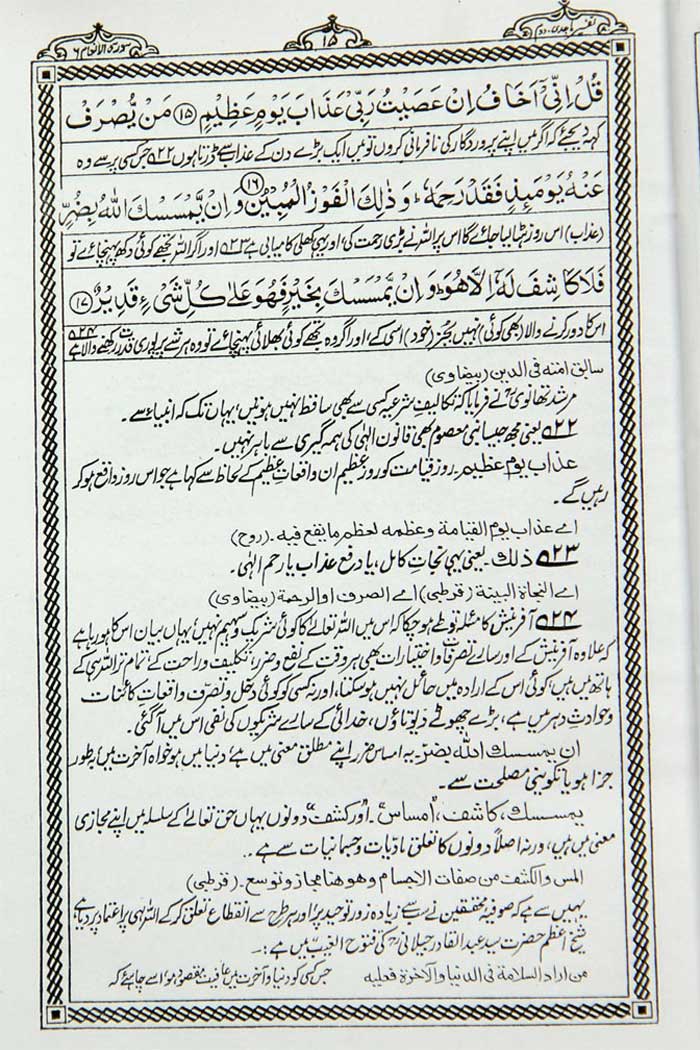 تفسیر ماجدی، دوم
۱۵
سورة الانعام ۶
قُلْ اِنِّیْۤ اَخَافُ اِنْ عَصَیْتُ رَبِّیْ عَذَابَ یَوْمٍ عَظِیْمٍ ۝۱۵ مَنْ یُّصْرَفْ
کہہ دیجئے کہ اگر میں اپنے پروردگار کی نافرمانی کروں تو میں ایک بڑے دن کے عذاب سے ڈرتا ہوں ۵۲۲ جس کسی پر سے وہ
عَنْهُ یَوْمَىِٕذٍ فَقَدْ رَحِمَهٗ ؕ وَ ذٰلِكَ الْفَوْزُ الْمُبِیْنُ ۝۱۶ وَ اِنْ یَّمْسَسْكَ اللّٰهُ بِضُرٍّ
(عذاب) اس روز ہٹا لیا جائے گا اس پر اللہ نے بڑی رحمت کی، اور یہی کھلی کامیابی ہے ۵۲۳ اور اگر اللہ تجھے کوئی دکھ پہنچائے تو
فَلَا كَاشِفَ لَهٗۤ اِلَّا هُوَ ؕ وَ اِنْ یَّمْسَسْكَ بِخَیْرٍ فَهُوَ عَلٰی كُلِّ شَیْءٍ قَدِیْرٌ ۝۱۷
اس کا دور کرنے والا (بھی کوئی) نہیں بجز (خود) اسی کے، اور اگر وہ تجھے کوئی بھلائی پہنچائے تو وہ ہر شے پر پوری قدرت رکھنے والا ہے ۵۲۴
سابق امته فی الدین (بیضاوی)
مرشد تھانویؒ نے فرمایا کہ تکالیف شرعیہ کسی سے بھی ساقط نہیں ہوتیں، یہاں تک کہ انبیاء سے۔
۵۲۲ یعنی مجھ جیسا نبی معصوم بھی قانون الٰہی کی ہمہ گیری سے باہر نہیں۔
عذاب یوم عظیم۔ روز قیامت کو روز عظیم ان واقعات عظیم کے لحاظ سے کہا ہے جو اس روز واقع ہو کر
رہیں گے۔
اے عذاب یوم القیامة وعظمه لعظم ما یقع فیه۔ (روح)
۵۲۳ ذلك۔ یعنی یہی نجات کامل، یا دفع عذاب یا رحم الٰہی۔
اے النجاة البینة (قرطبی) اے الصرف او الرحمة (بیضاوی)
۵۲۴ آفرینش کا مسئلہ تو طے ہو چکا کہ اس میں اللہ تعالےٰ کا کوئی شریک و سہیم نہیں، یہاں بیان اس کا ہو رہا ہے
کہ علاوہ آفرینش کے اور سارے تصرفات و اختیارات بھی ہر وقت کے نفع و ضرر، تکلیف و راحت کے، تمام تر اللہ ہی کے
ہاتھ میں ہیں، کوئی اس کے ارادہ میں حائل نہیں ہو سکتا، اور نہ کسی کو کوئی دخل و تصرف واقعات کائنات
و حوادث دہر میں ہے، بڑے چھوٹے دیوتاؤں، خدائی کے سارے شریکوں کی نفی اس میں آ گئی۔
ان یمسسك الله بضر۔ یہ امساس ضرر اپنے مطلق معنی میں ہے، دنیا میں ہو خواہ آخرت میں، بہ طور
جزا ہو یا تکوینی مصلحت سے۔
یمسسك، کاشف، "امساس"۔ اور "کشف" دونوں یہاں حق تعالےٰ کے سلسلہ میں اپنے مجازی
معنی میں ہیں، ورنہ اصلاً دونوں کا تعلق مادیات و جسمانیات سے ہے۔
المس والکشف من صفات الاجسام وهو هنا مجاز و توسع۔ (قرطبی)
یہیں سے ہے کہ صوفیہ محققین نے سب سے زیادہ زور توحید پر، اور ہر طرح سے انقطاع تعلق کر کے اللہ ہی پر اعتماد پر دیا ہے،
شیخ اعظم حضرت سید عبد القادر جیلانیؒ کی فتوح الغیب میں ہے:۔
من اراد السلامة فی الدنیا والآخرة فعلیه جس کسی کو دنیا و آخرت میں عافیت مقصود ہو اسے چاہئے کہ